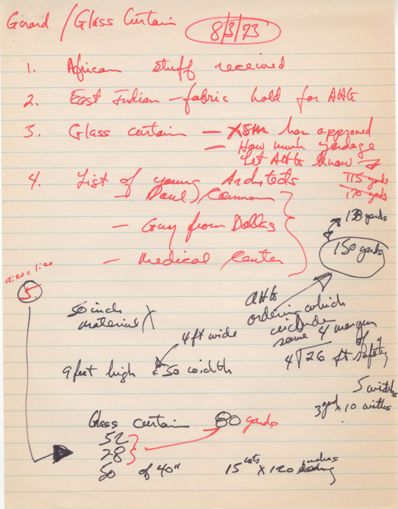 Girard / Glass Curtain
8/3/73
1. African stuff received
2. East Indian - fabric hold for AHG
3. Glass curtain - has approved
- How much yardage
Let AHG know
4. List of young Architects
115 yards
170 yards
- Paul)
- Guy from Dallas
- Medical Center
130 yards
150 yards
5.
50 inch
material
AHG
ordering which
includes
some 4 margin
of
safety
4 ft wide
9 feet high 50 width
4√26 ft
5 widths
3 yard x 10 widths
Glass curtain 80 yards
52
28
50 of 40" 15 x 120